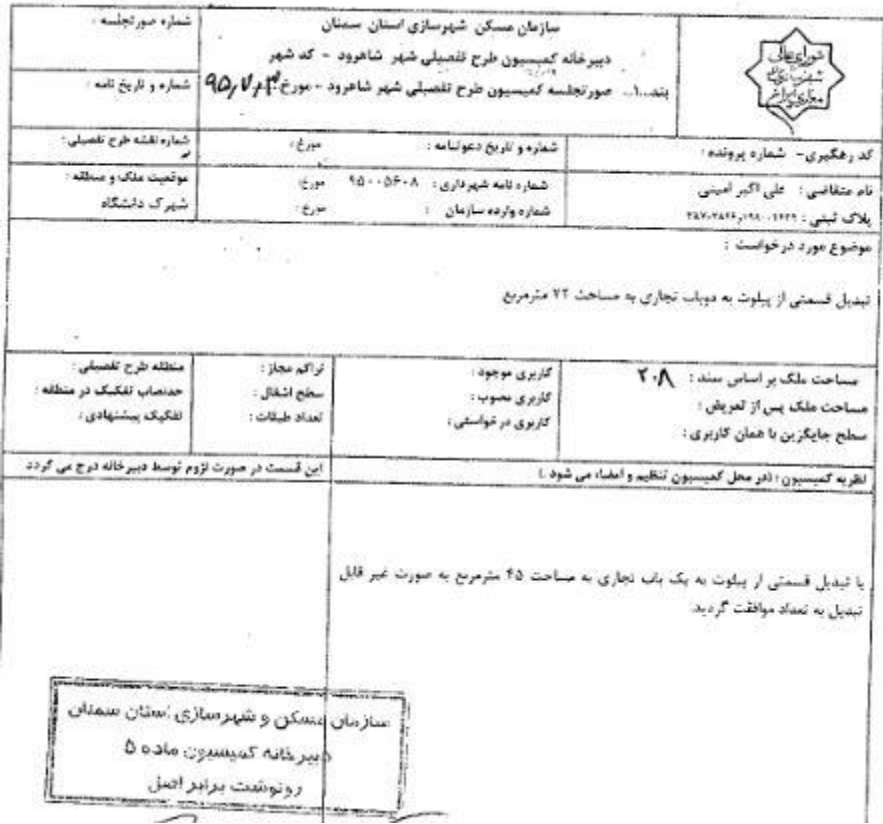 سازمان مسکن شهرسازی استان سمنان
دبیرخانه کمیسیون طرح تفصیلی شهر شاهرود - کد شهر
بند..۱.. صورتجلسه کمیسیون طرح تفصیلی شهر شاهرود - مورخ
شماره صورتجلسه :
شماره و تاریخ نامه :
شورای عالی
شهرسازی و
معماری ایران
کد رهگیری- شماره پرونده :
شماره و تاریخ دعوتنامه : مورخ :
شماره نقشه طرح تفصیلی :
نام متقاضی : علی اکبر امینی
شماره نامه شهرداری : ۹۵۰۰۵۶۰۸ مورخ :
موقعیت ملک و منطقه :
پلاک ثبتی :
شماره وارده سازمان : مورخ :
شهرک دانشگاه
موضوع مورد درخواست :
تبدیل قسمتی از پیلوت به دوباب تجاری به مساحت ۷۲ مترمربع
مساحت ملک بر اساس سند : ۲۰۸
مساحت ملک پس از تعریض :
سطح جایگزین با همان کاربری :
کاربری موجود :
کاربری مصوب :
کاربری درخواستی :
تراکم مجاز :
سطح اشغال :
تعداد طبقات :
منطقه طرح تفصیلی :
حدنصاب تفکیک در منطقه :
تفکیک پیشنهادی :
نظریه کمیسیون : (در محل کمیسیون تنظیم و امضاء می شود .)
این قسمت در صورت لزوم توسط دبیرخانه درج می گردد
با تبدیل قسمتی از پیلوت به یک باب تجاری به مساحت ۴۵ مترمربع به صورت غیر قابل
تبدیل به تعداد موافقت گردید.
سازمان مسکن و شهرسازی استان سمنان
دبیرخانه کمیسیون ماده ۵
رونوشت برابر اصل